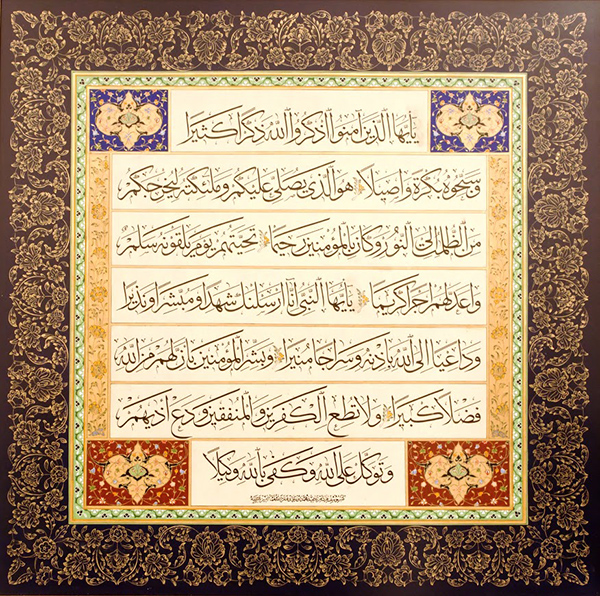 يأيها الذين آمنوا اذكروا الله ذكرا كثيرا
وسبحوه بكرة وأصيلا هو الذي يصلي عليكم وملئكته ليخرجكم
من الظلمت إلى النور وكان بالمؤمنين رحيما تحيتهم يوم يلقونه سلم
وأعد لهم أجرا كريما يأيها النبي إنا أرسلنك شهدا ومبشرا ونذيرا
وداعيا إلى الله بإذنه وسراجا منيرا وبشر المؤمنين بأن لهم من الله
فضلا كبيرا ولا تطع الكفرين والمنفقين ودع أذيهم
وتوكل على الله وكفى بالله وكيلا